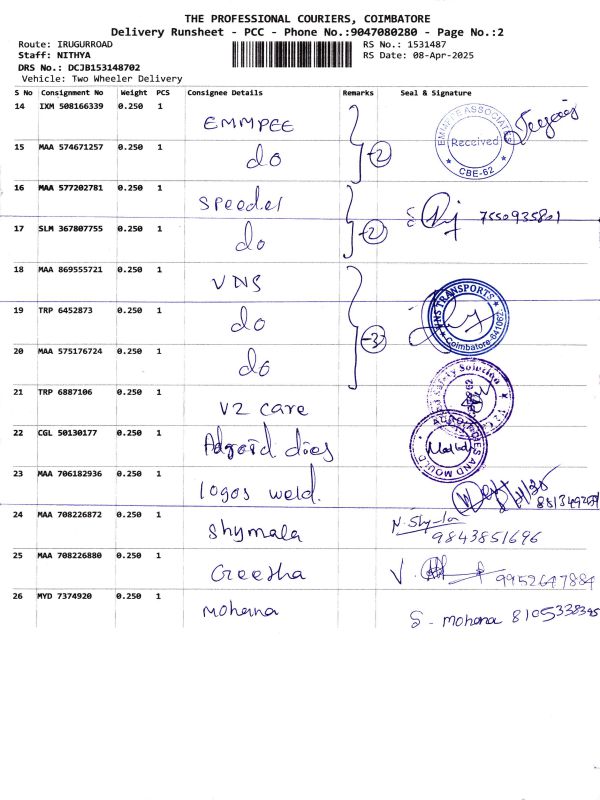 THE PROFESSIONAL COURIERS, COIMBATORE
Delivery Runsheet - PCC - Phone No.:9047080280 - Page No.:2
Route: IRUGURROAD
RS No.: 1531487
Staff: NITHYA
RS Date: 08-Apr-2025
DRS No.: DCJB153148702
Vehicle: Two Wheeler Delivery
S No Consignment No Weight PCS Consignee Details Remarks Seal & Signature
14 IXM 508166339 0.250 1 EMMPEE
EMMPEE ASSOCIATES Received CBE-62
15 MAA 574671257 0.250 1 do -2
16 MAA 577202781 0.250 1 speeder
7550935801
17 SLM 367807755 0.250 1 do -2
18 MAA 869555721 0.250 1 VNS
VNS TRANSPORTS Coimbatore-641062
19 TRP 6452873 0.250 1 do -3
20 MAA 575176724 0.250 1 do
21 TRP 6887106 0.250 1 V2 care
Safety Solution V2
22 CGL 50130177 0.250 1 Adgroid dies
AND MOULD
23 MAA 706182936 0.250 1 logos weld.
24 MAA 708226872 0.250 1 shymala
9843851696
25 MAA 708226880 0.250 1 Geetha
9952647884
26 MYD 7374920 0.250 1 mohana
S - mohana 8105338395